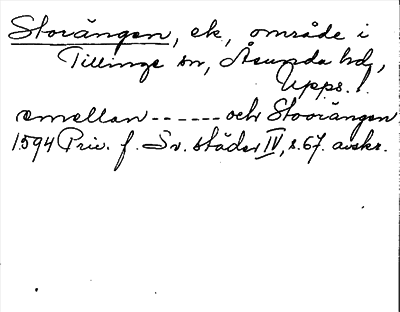 Storängen, ek, område i
Tillinge sn, Åsunda hd,
Upps. l.
emellan ------ och Stoorängen
1594 Priv. f. Sv. städer IV, s. 67. avskr.